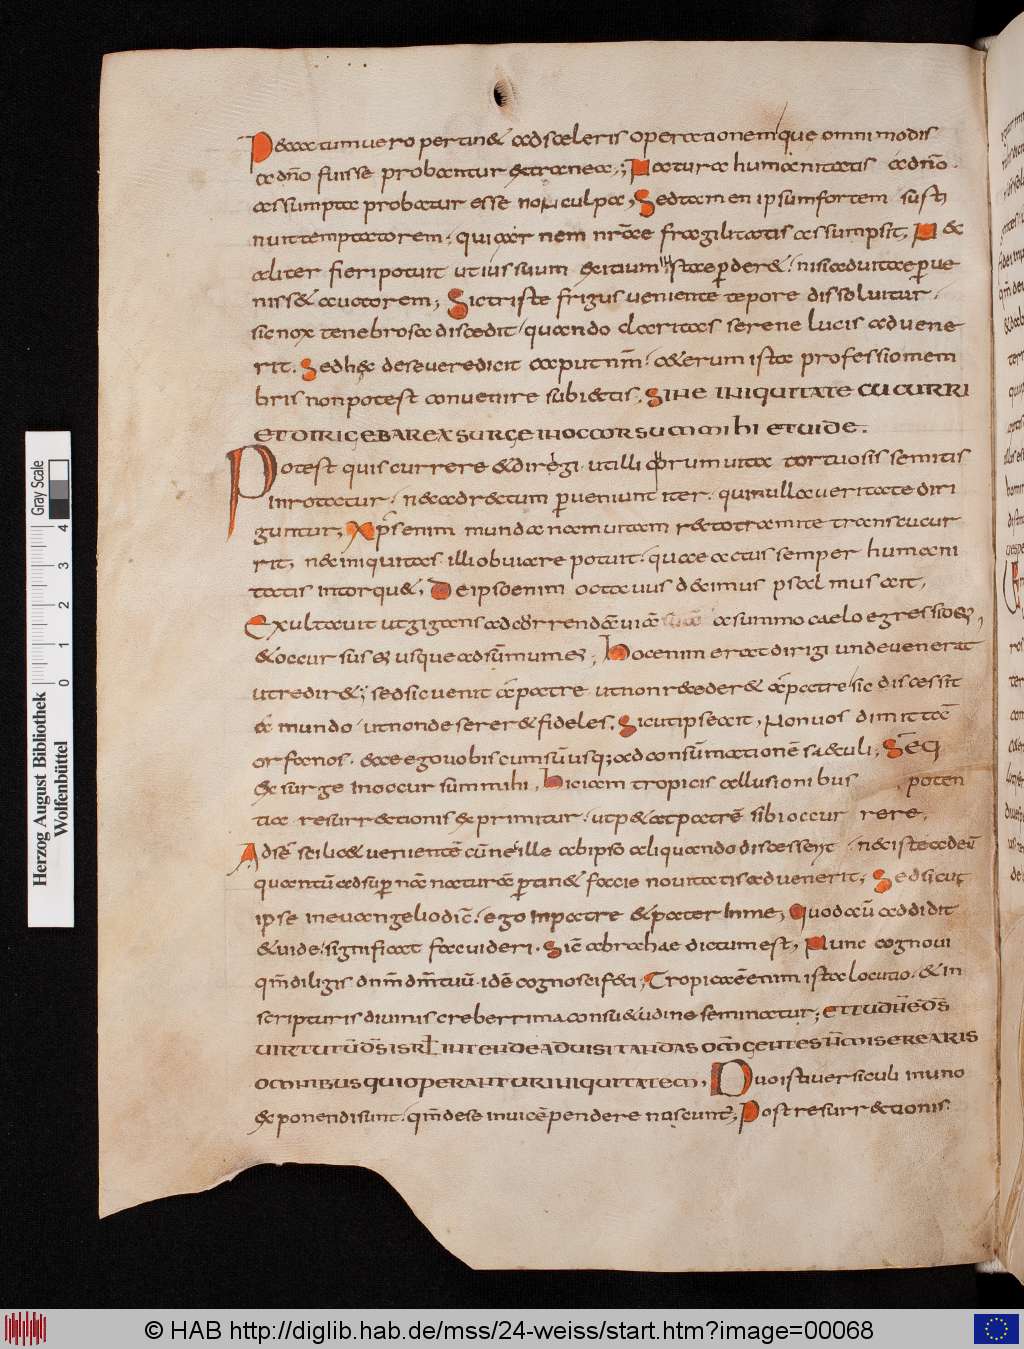 Peccatum uero pertin& ad sceleris operationem que omnimodis
a dño fuisse probantur extranea; Natura humanitatis a dño
assumpta probatur esse non culpa, Sed tamen ipsum fortem susti
nuit temptatorem, qui carnem nr̄ae fragilitatis assumpsit, Nec
aliter fieri potuit ut ius suum exitium istae perder&, nisi ad uitae perue
niss& auctorem; Sic triste frigus ueniente tepore dissoluitur,
sic nox tenebrosa discedit, quando claritas serene lucis aduene
rit. Sed hęc de se uere dicit caput nr̄m, ceterum ista professio mem
bris non potest conuenire subiectis. SINE INIQUITATE CUCURRI
ET DIRIGEBAR EXSURGE IN OCCORSUM MIHI ET UIDE.
Potest quis currere & dirigi, ut illi quorum uita tortuosis semitis
inrotatur, nec ad rectum perueniunt iter, qui nulla ueritate diri
guntur; Xp̄s enim munda nam uitam recto tramite transcucur
rit, nec iniquitas illi obuiare potuit, quae actus semper humani
tatis intorqu&, De ipso enim octauus decimus psalmus ait,
Exultauit ut gigans ad currendā uiā a summo caelo egressio eius,
& occursus eius usque ad sūmum eius; Hoc enim erat dirigi unde uenerat
ut redir&; sed sic uenit a patre ut non receder& a patre, sic discessit
a mundo ut non deserer& fideles. Sicut ipse ait, Non uos dimittā
orfanos, ecce ego uobiscum sū usq; ad consūmationē saeculi; Seq
Exsurge in occursum mihi, Hic iam tropicis allusionibus poten
tia resurrectionis exprimitur, ut p&at patrē sibi occurrere,
Ad se scilic& uenientē cū ne ille ab ipso aliquando discessent nec iste ad eū
quantū ad supernā naturā pertin& facie nouitatis aduenerit; Sed sicut
ipse in euangelio dic̄, ego in patre & pater in me, Quod aū addidit
& uide, significat fac uideri. Sic abrahae dictum est, Nunc cognoui
qm̄ diligis dnm̄ dm̄ tuū, idē cognosci feci; Tropica enim ista locutio, & in
scripturis diuinis creberrima consu&udine seminatur; ET TU DNE DS̄
UIRTUTŪ DS̄ ISRL INTENDE AD UISITANDAS OMS GENTES N̄ MISEREARIS
OMNIBUS QUI OPERANTUR INIQUITATEM, Duo isti uersiculi in uno
exponendi sunt, qm̄ de se inuicē pendere nascunt; Post resurrectionis
© HAB http://diglib.hab.de/mss/24-weiss/start.htm?image=00068
Herzog August Bibliothek
Wolfenbüttel
Gray Scale
0 1 2 3 4